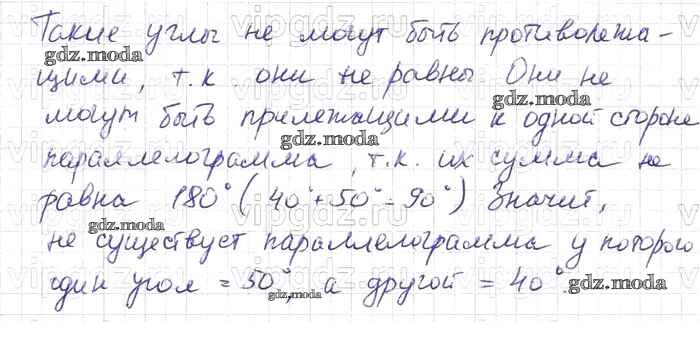 Такие углы не могут быть противолежа-
щими, т.к они не равны Они не
могут быть прилежащими к одной стороне
параллелограмма, т.к. их сумма не
равна 180° (40°+50°=90°) Значит,
не существует параллелограмма у которого
один угол = 50°, а другой = 40°.
gdz.moda
gdz.moda
gdz.moda
gdz.moda
gdz.moda
gdz.moda
gdz.moda
gdz.moda
gdz.moda